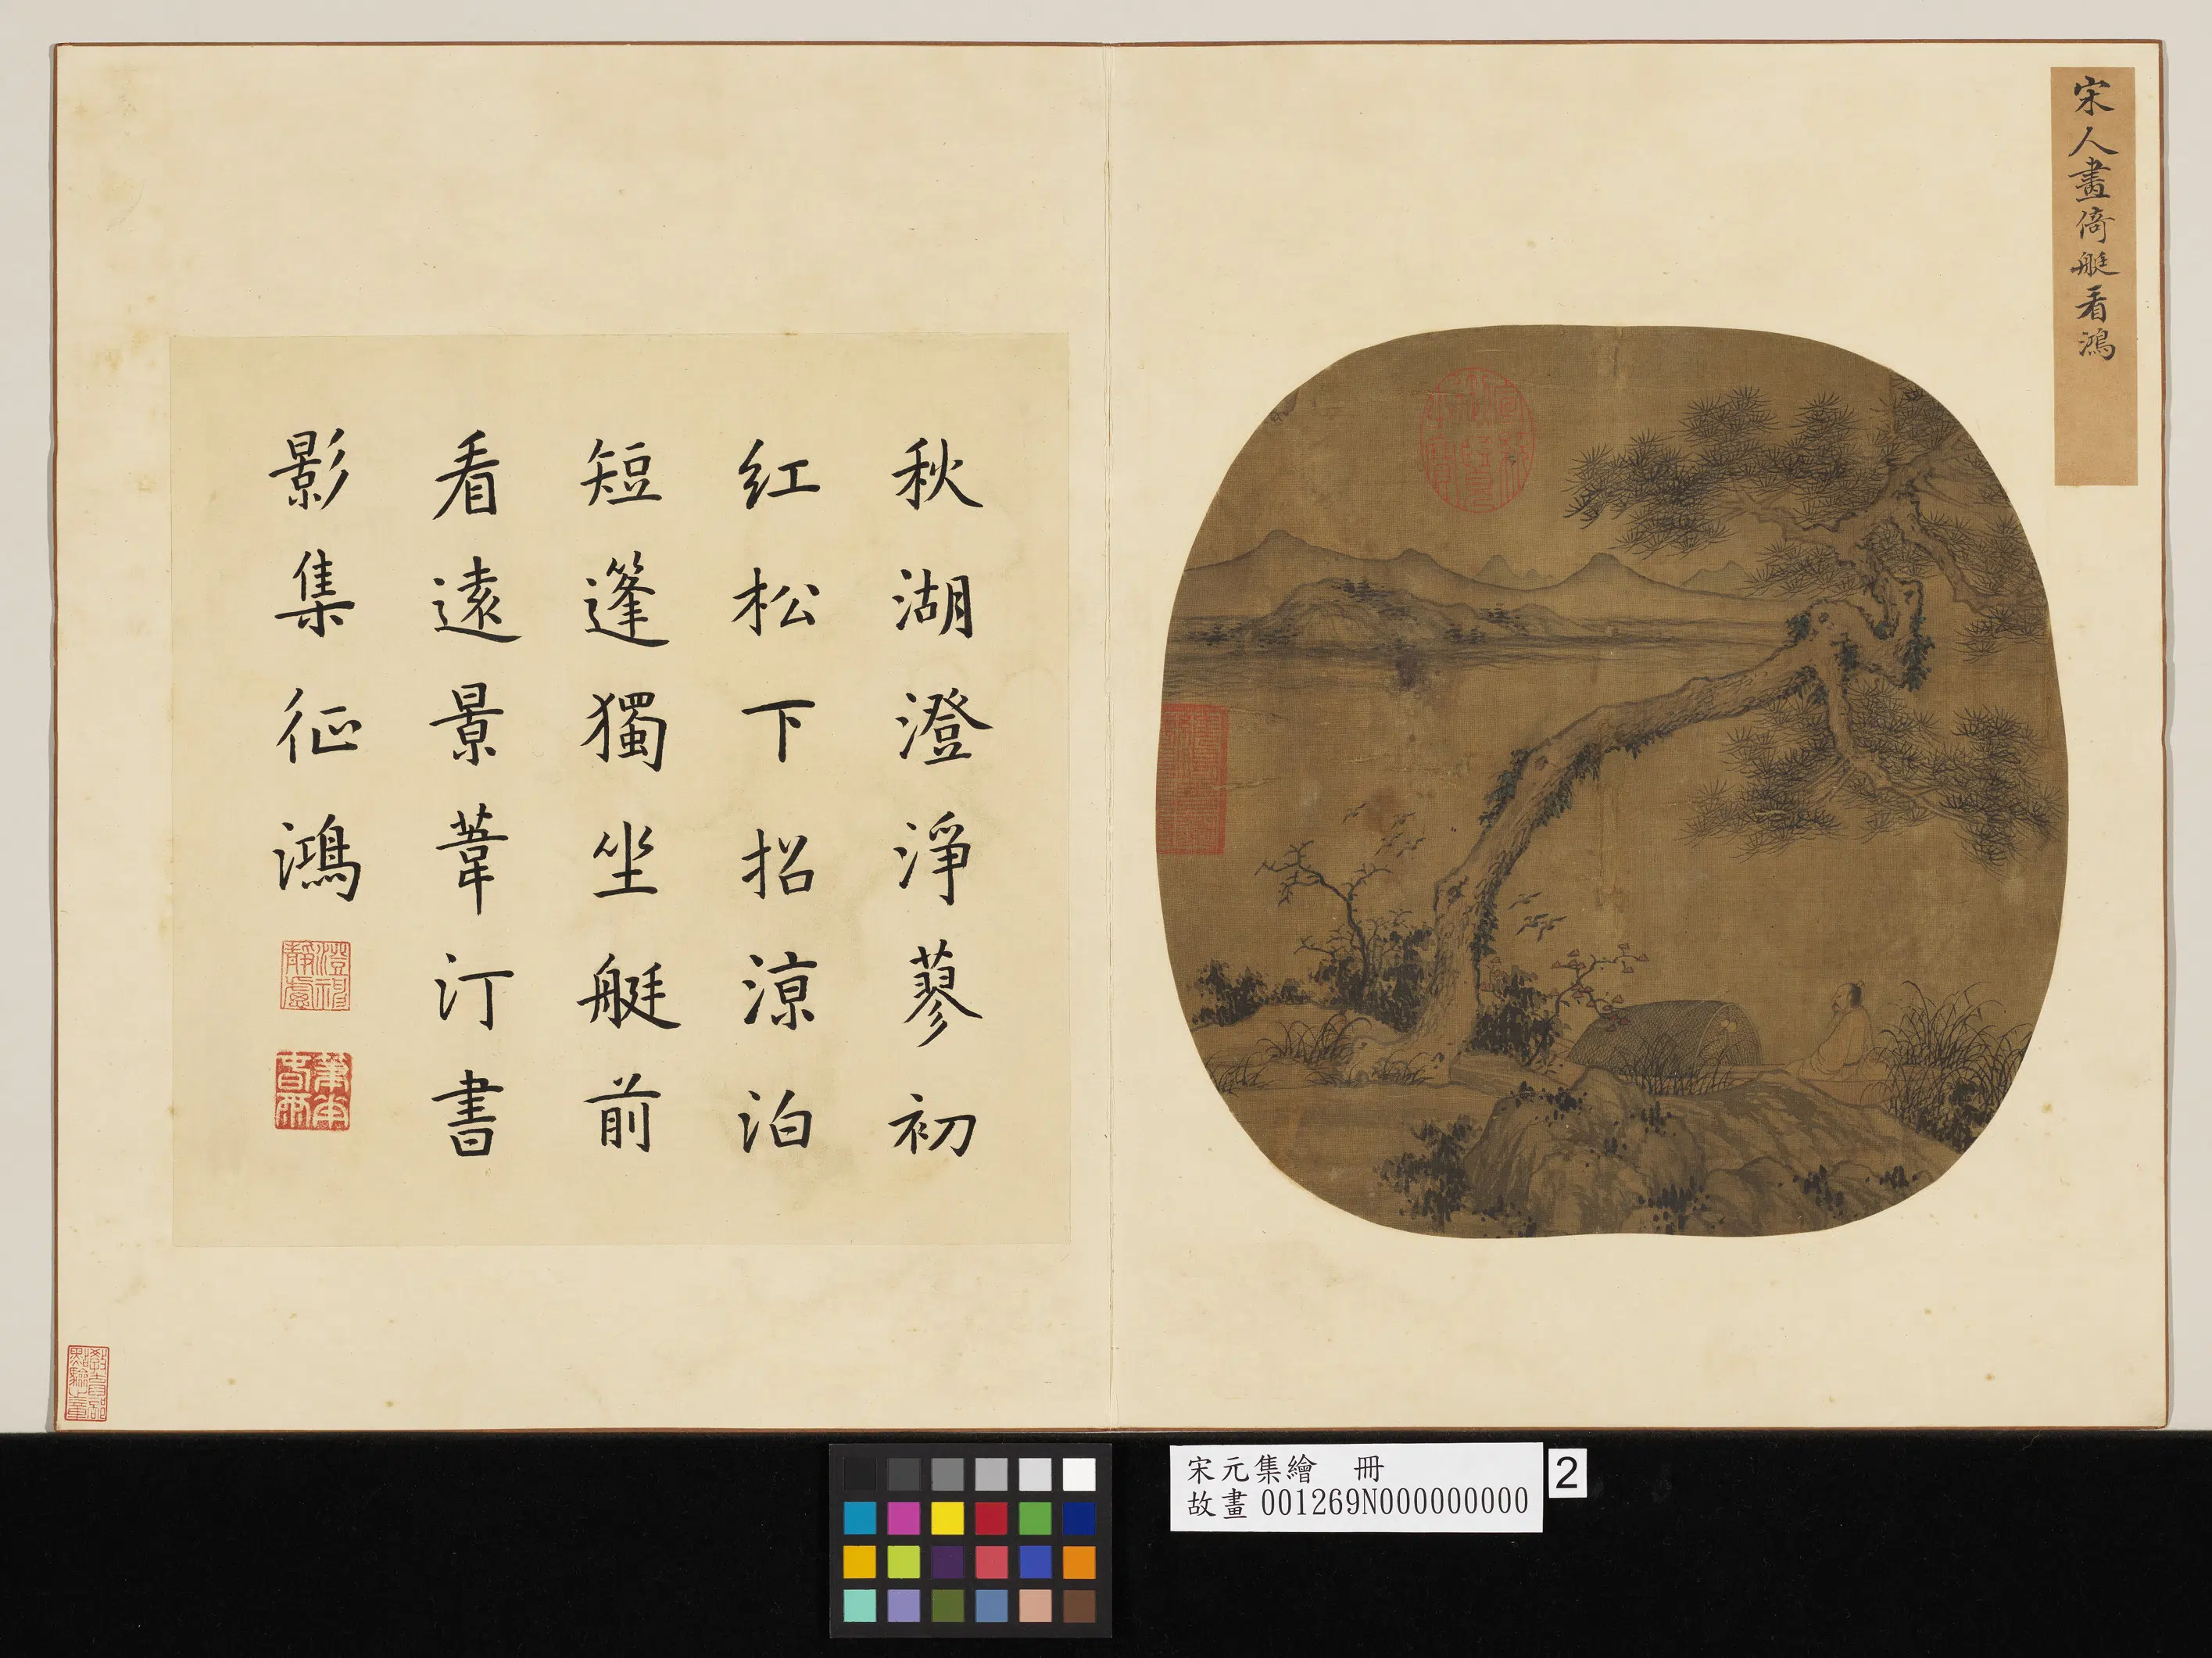 宋人畫倚艇看鴻
秋湖澄淨蓼初
紅松下招涼泊
短篷獨坐艇前
看遠景葦汀書
影集征鴻
宋元集繪　冊
故畫 001269N000000000
2